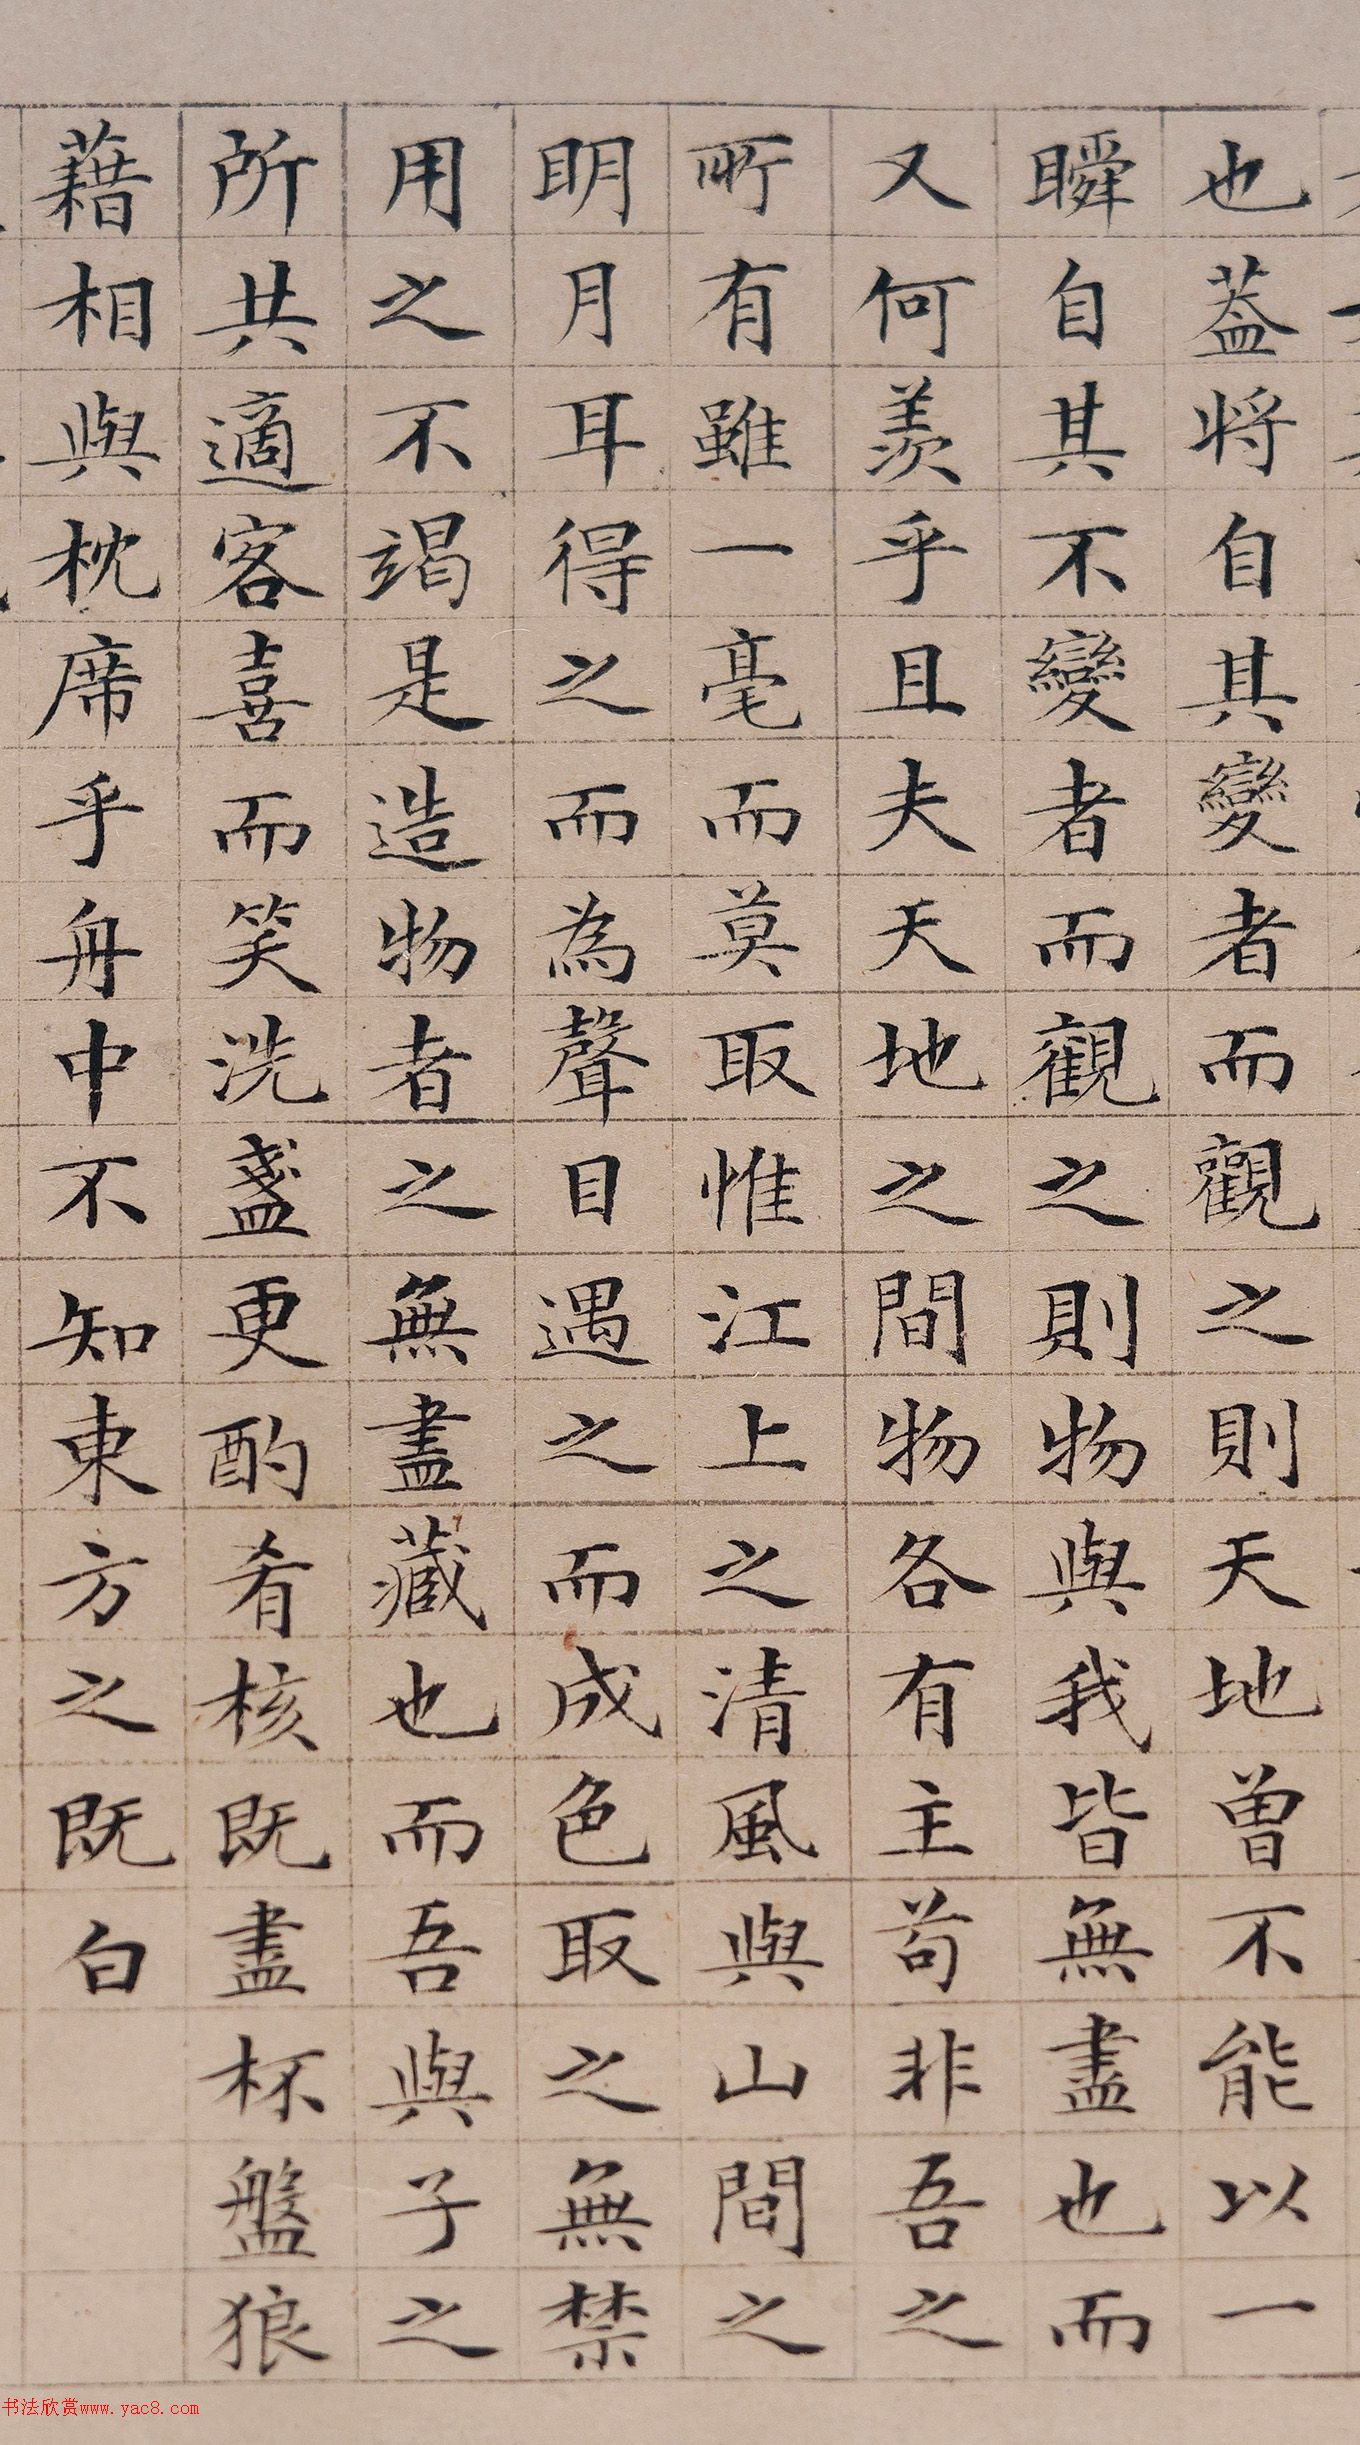 也蓋將自其變者而觀之則天地曾不能以一
瞬自其不變者而觀之則物與我皆無盡也而
又何羨乎且夫天地之間物各有主苟非吾之
所有雖一毫而莫取惟江上之清風與山間之
明月耳得之而為聲目遇之而成色取之無禁
用之不竭是造物者之無盡藏也而吾與子之
所共適客喜而笑洗盞更酌肴核既盡杯盤狼
藉相與枕席乎舟中不知東方之既白
书法欣赏www.yac8.com